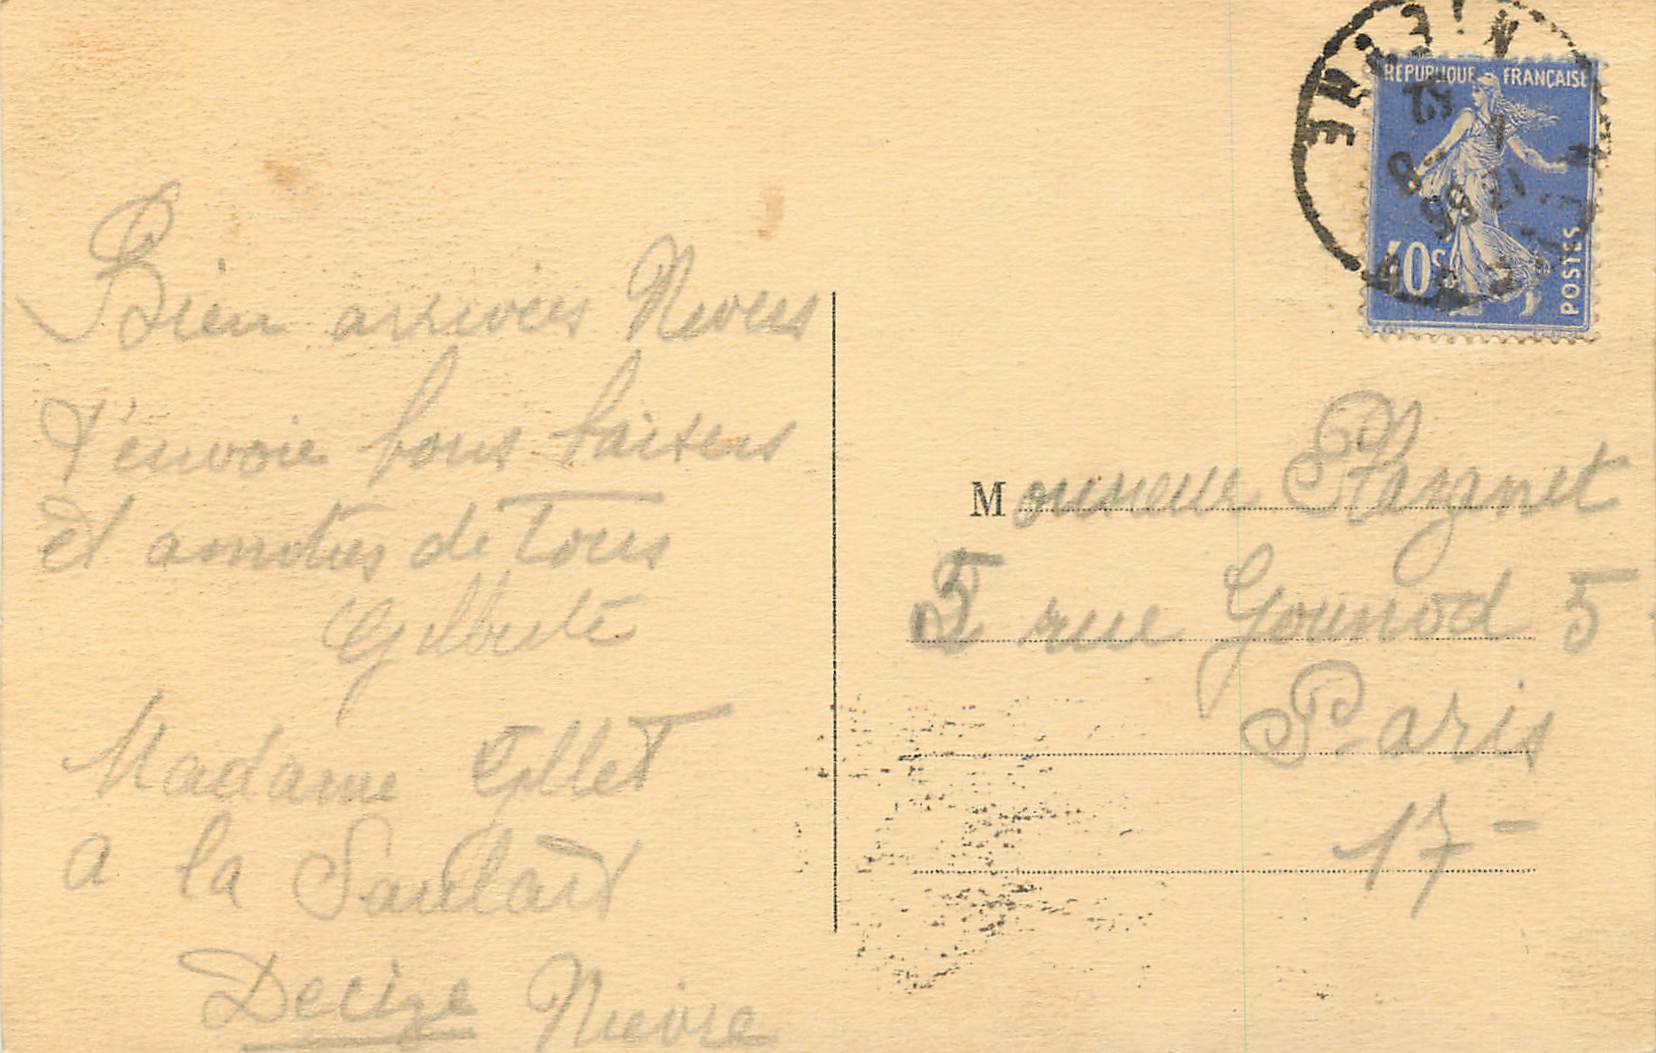 Bien arrivées Nevers
t'envoie bons baisers
et amitiés de Tous
Gilberte
Madame Gillet
a la Saulaie
Decize Nièvre
RÉPUBLIQUE FRANÇAISE
40c
POSTES
Monsieur Plazanet
5 rue Gounod 5
Paris
17-